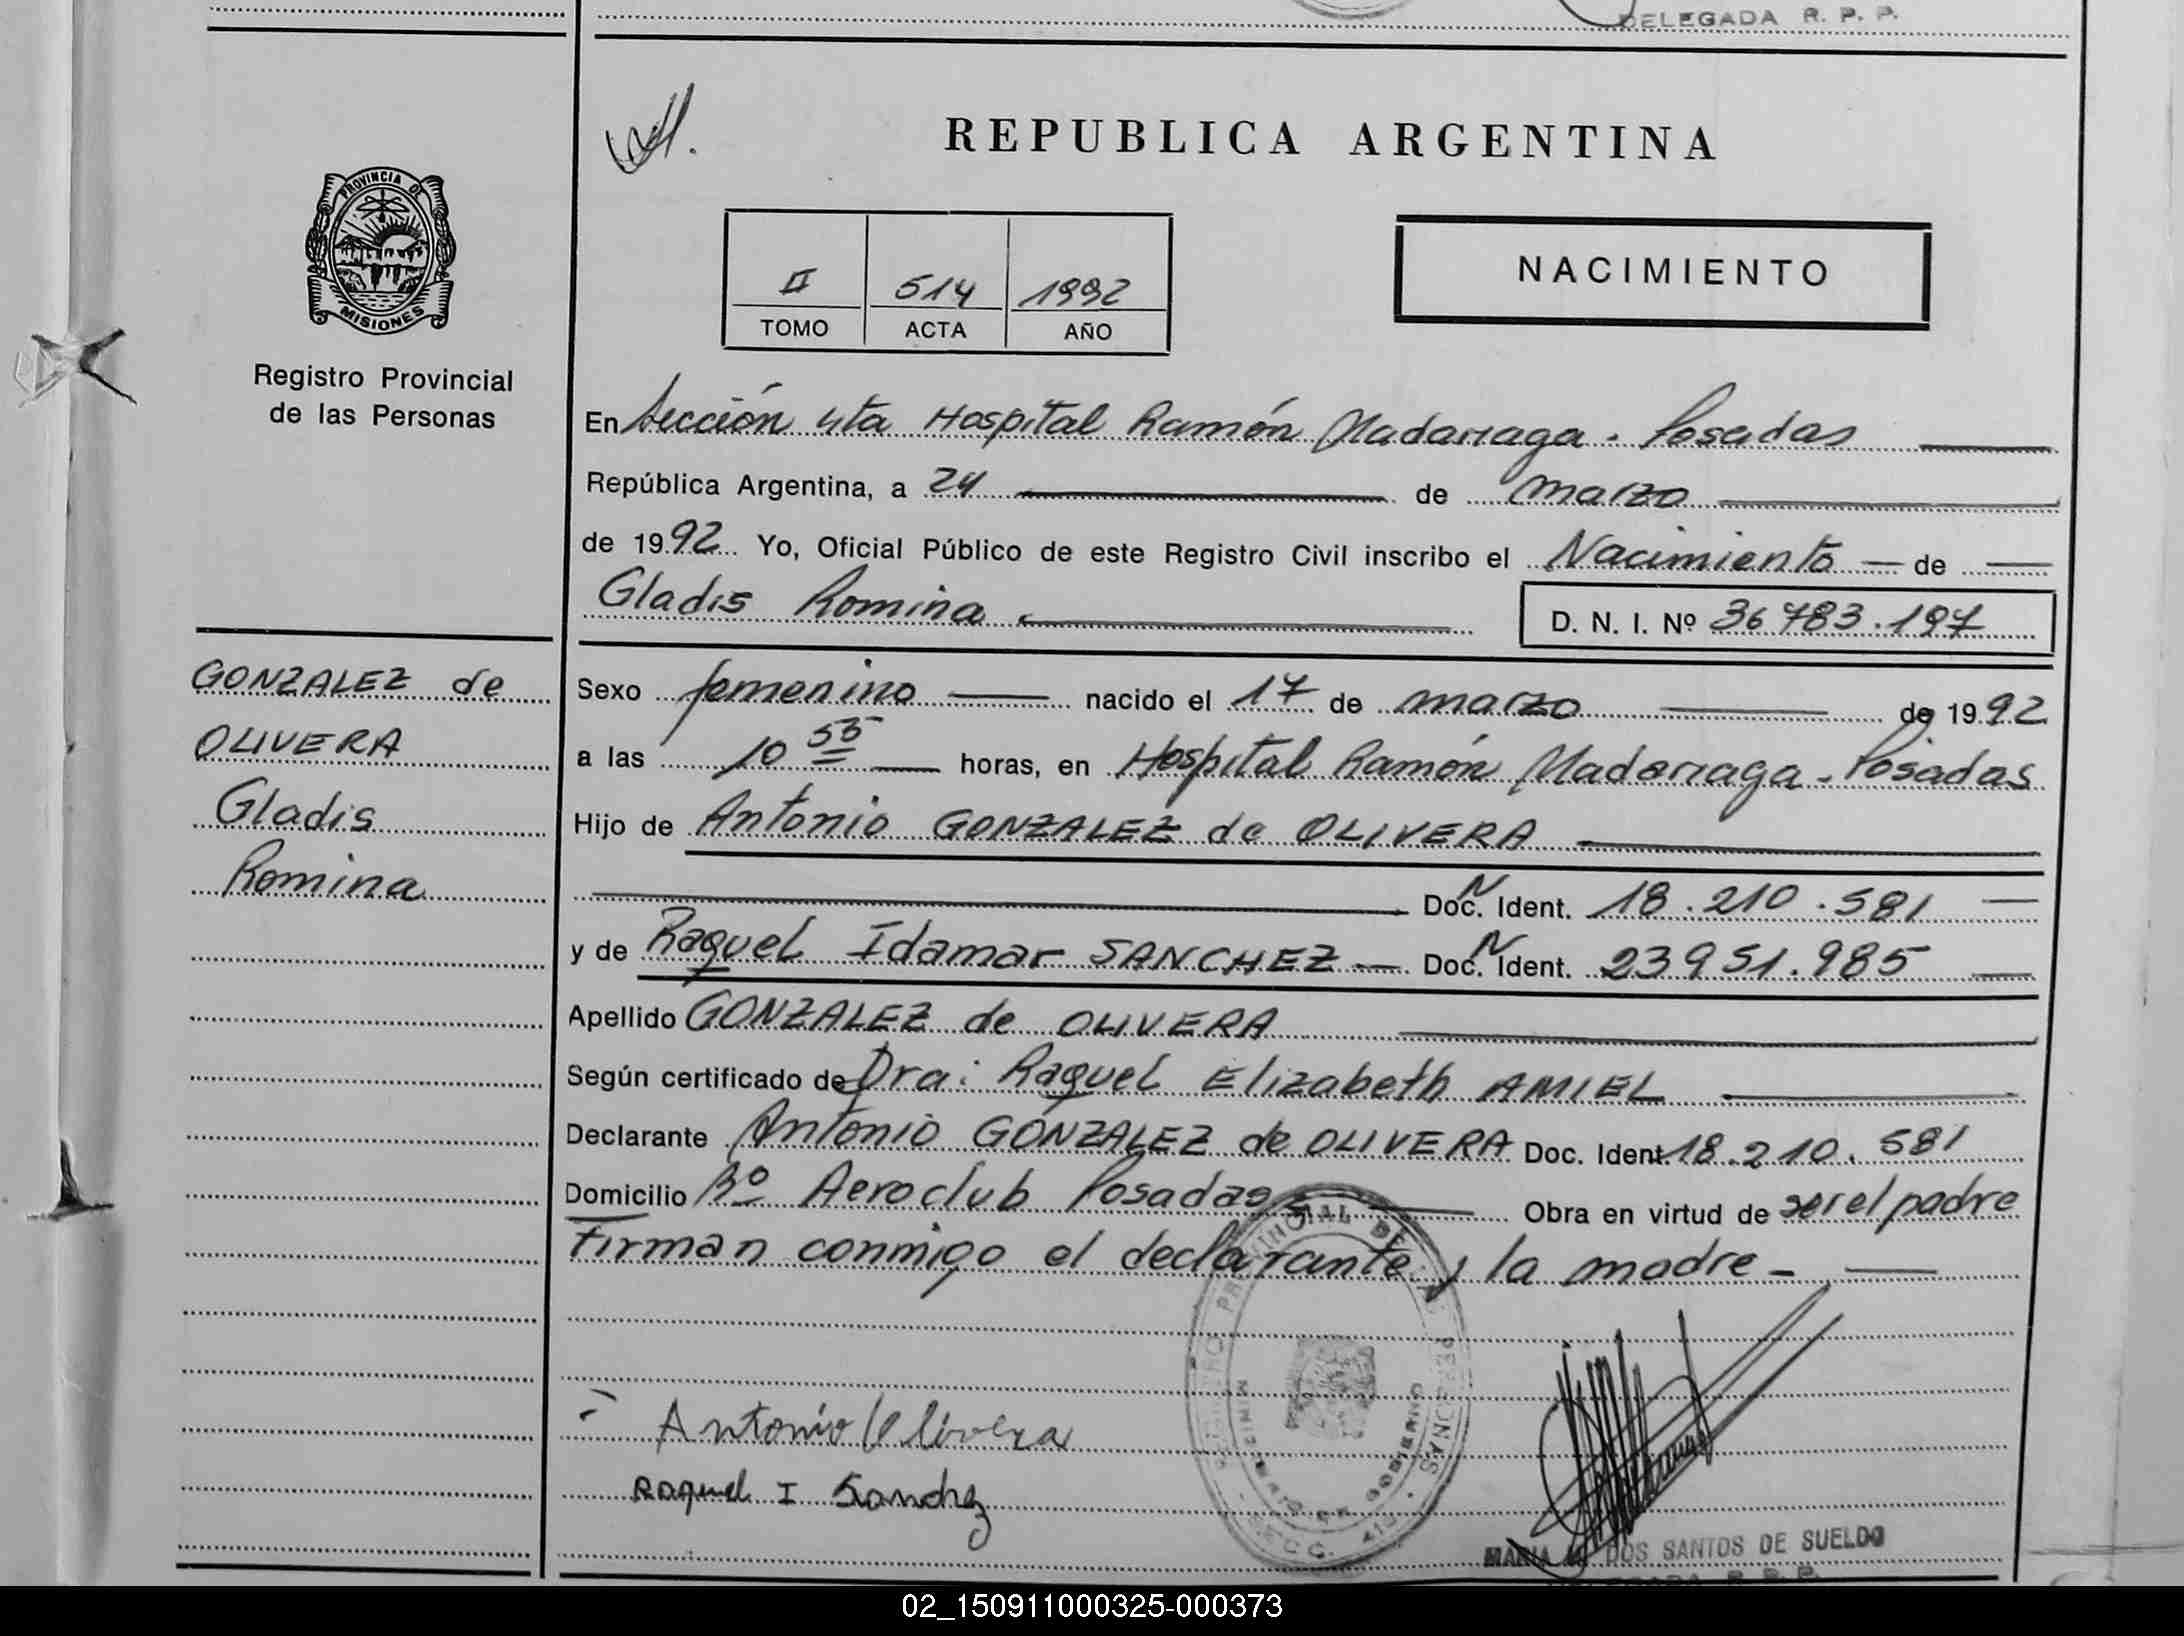 DELEGADA R. P. P.
REPUBLICA ARGENTINA
PROVINCIA DE
MISIONES
Registro Provincial
de las Personas
II 514 1992
TOMO ACTA AÑO
NACIMIENTO
En Sección 4ta Hospital Ramón Madariaga. Posadas
República Argentina, a 24 de marzo
de 1992 Yo, Oficial Público de este Registro Civil inscribo el Nacimiento de
Gladis Romina.
D. N. I. Nº 36783.197
GONZALEZ de
OLIVERA
Gladis
Romina
Sexo femenino nacido el 17 de marzo de 1992
a las 10 55 horas, en Hospital Ramón Madariaga - Posadas
Hijo de Antonio GONZALEZ de OLIVERA
Doc. N Ident. 18.210.581
y de Raquel Idamar SANCHEZ Doc. N Ident. 23951.985
Apellido GONZALEZ de OLIVERA
Según certificado de Dra: Raquel Elizabeth AMIEL
Declarante Antonio GONZALEZ de OLIVERA Doc. Ident. 18.210.581
Domicilio Bº Aeroclub Posadas Obra en virtud de ser el padre
Firman conmigo el declarante y la madre -
REGISTRO PROVINCIAL DE LAS PERSONAS
MINISTERIO DE GOBIERNO
SECC. 4ta
Antonio Olivera
Raquel I Sanchez
MARIA DOS SANTOS DE SUELDO
DELEGADA R. P. P.
02_150911000325-000373